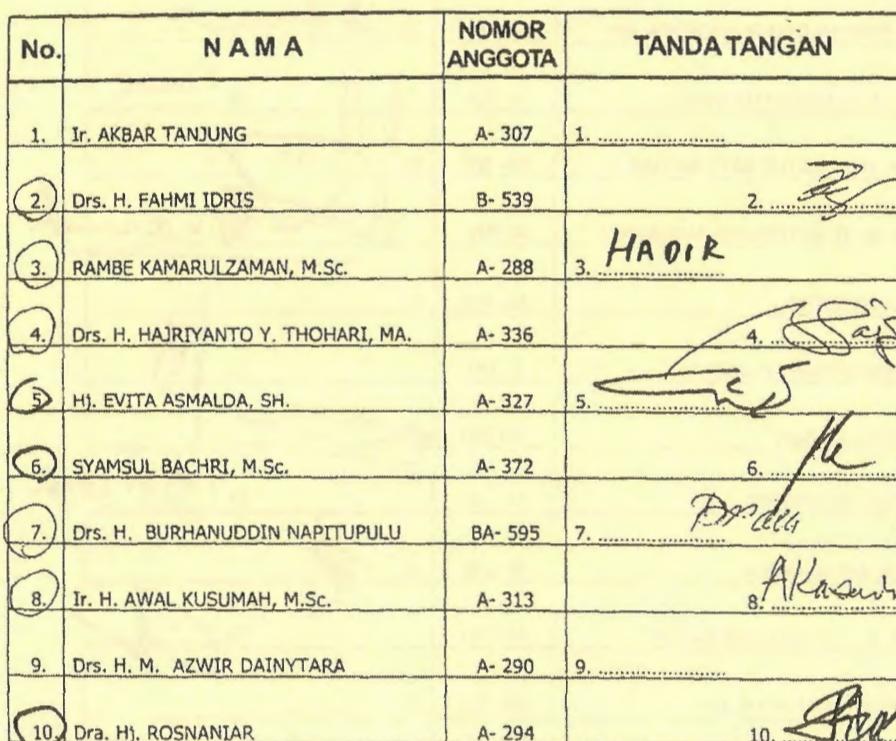 No. NAMA NOMOR ANGGOTA TANDA TANGAN
1. Ir. AKBAR TANJUNG A- 307 1. ....................
2. Drs. H. FAHMI IDRIS B- 539 2. ....................
3. RAMBE KAMARULZAMAN, M.Sc. A- 288 3. HADIR
4. Drs. H. HAJRIYANTO Y. THOHARI, MA. A- 336 4. ....................
5 Hj. EVITA ASMALDA, SH. A- 327 5. ....................
6. SYAMSUL BACHRI, M.Sc. A- 372 6. ....................
7. Drs. H. BURHANUDDIN NAPITUPULU BA- 595 7. ....................
8. Ir. H. AWAL KUSUMAH, M.Sc. A- 313 8.
9. Drs. H. M. AZWIR DAINYTARA A- 290 9. ....................
10. Dra. Hj. ROSNANIAR A- 294 10.